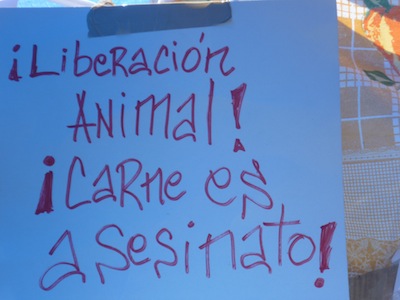 ¡Liberación
Animal!
¡Carne es
asesinato!